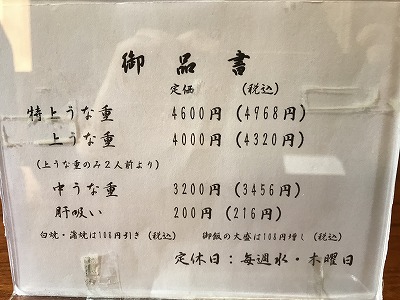 御品書
定価 (税込)
特上うな重 4600円 (4968円)
上うな重 4000円 (4320円)
(上うな重のみ2人前より)
中うな重 3200円 (3456円)
肝吸い 200円 (216円)
白焼・蒲焼は108円引き (税込) 御飯の大盛は108円増し (税込)
定休日：毎週水・木曜日